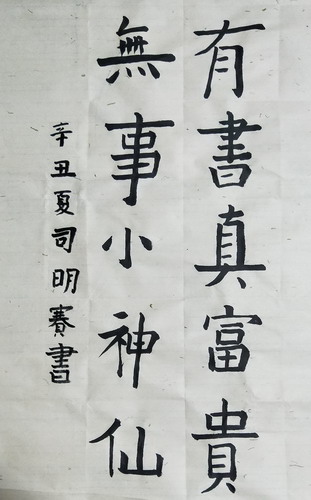 有書真富貴
無事小神仙
辛丑夏司明賽書